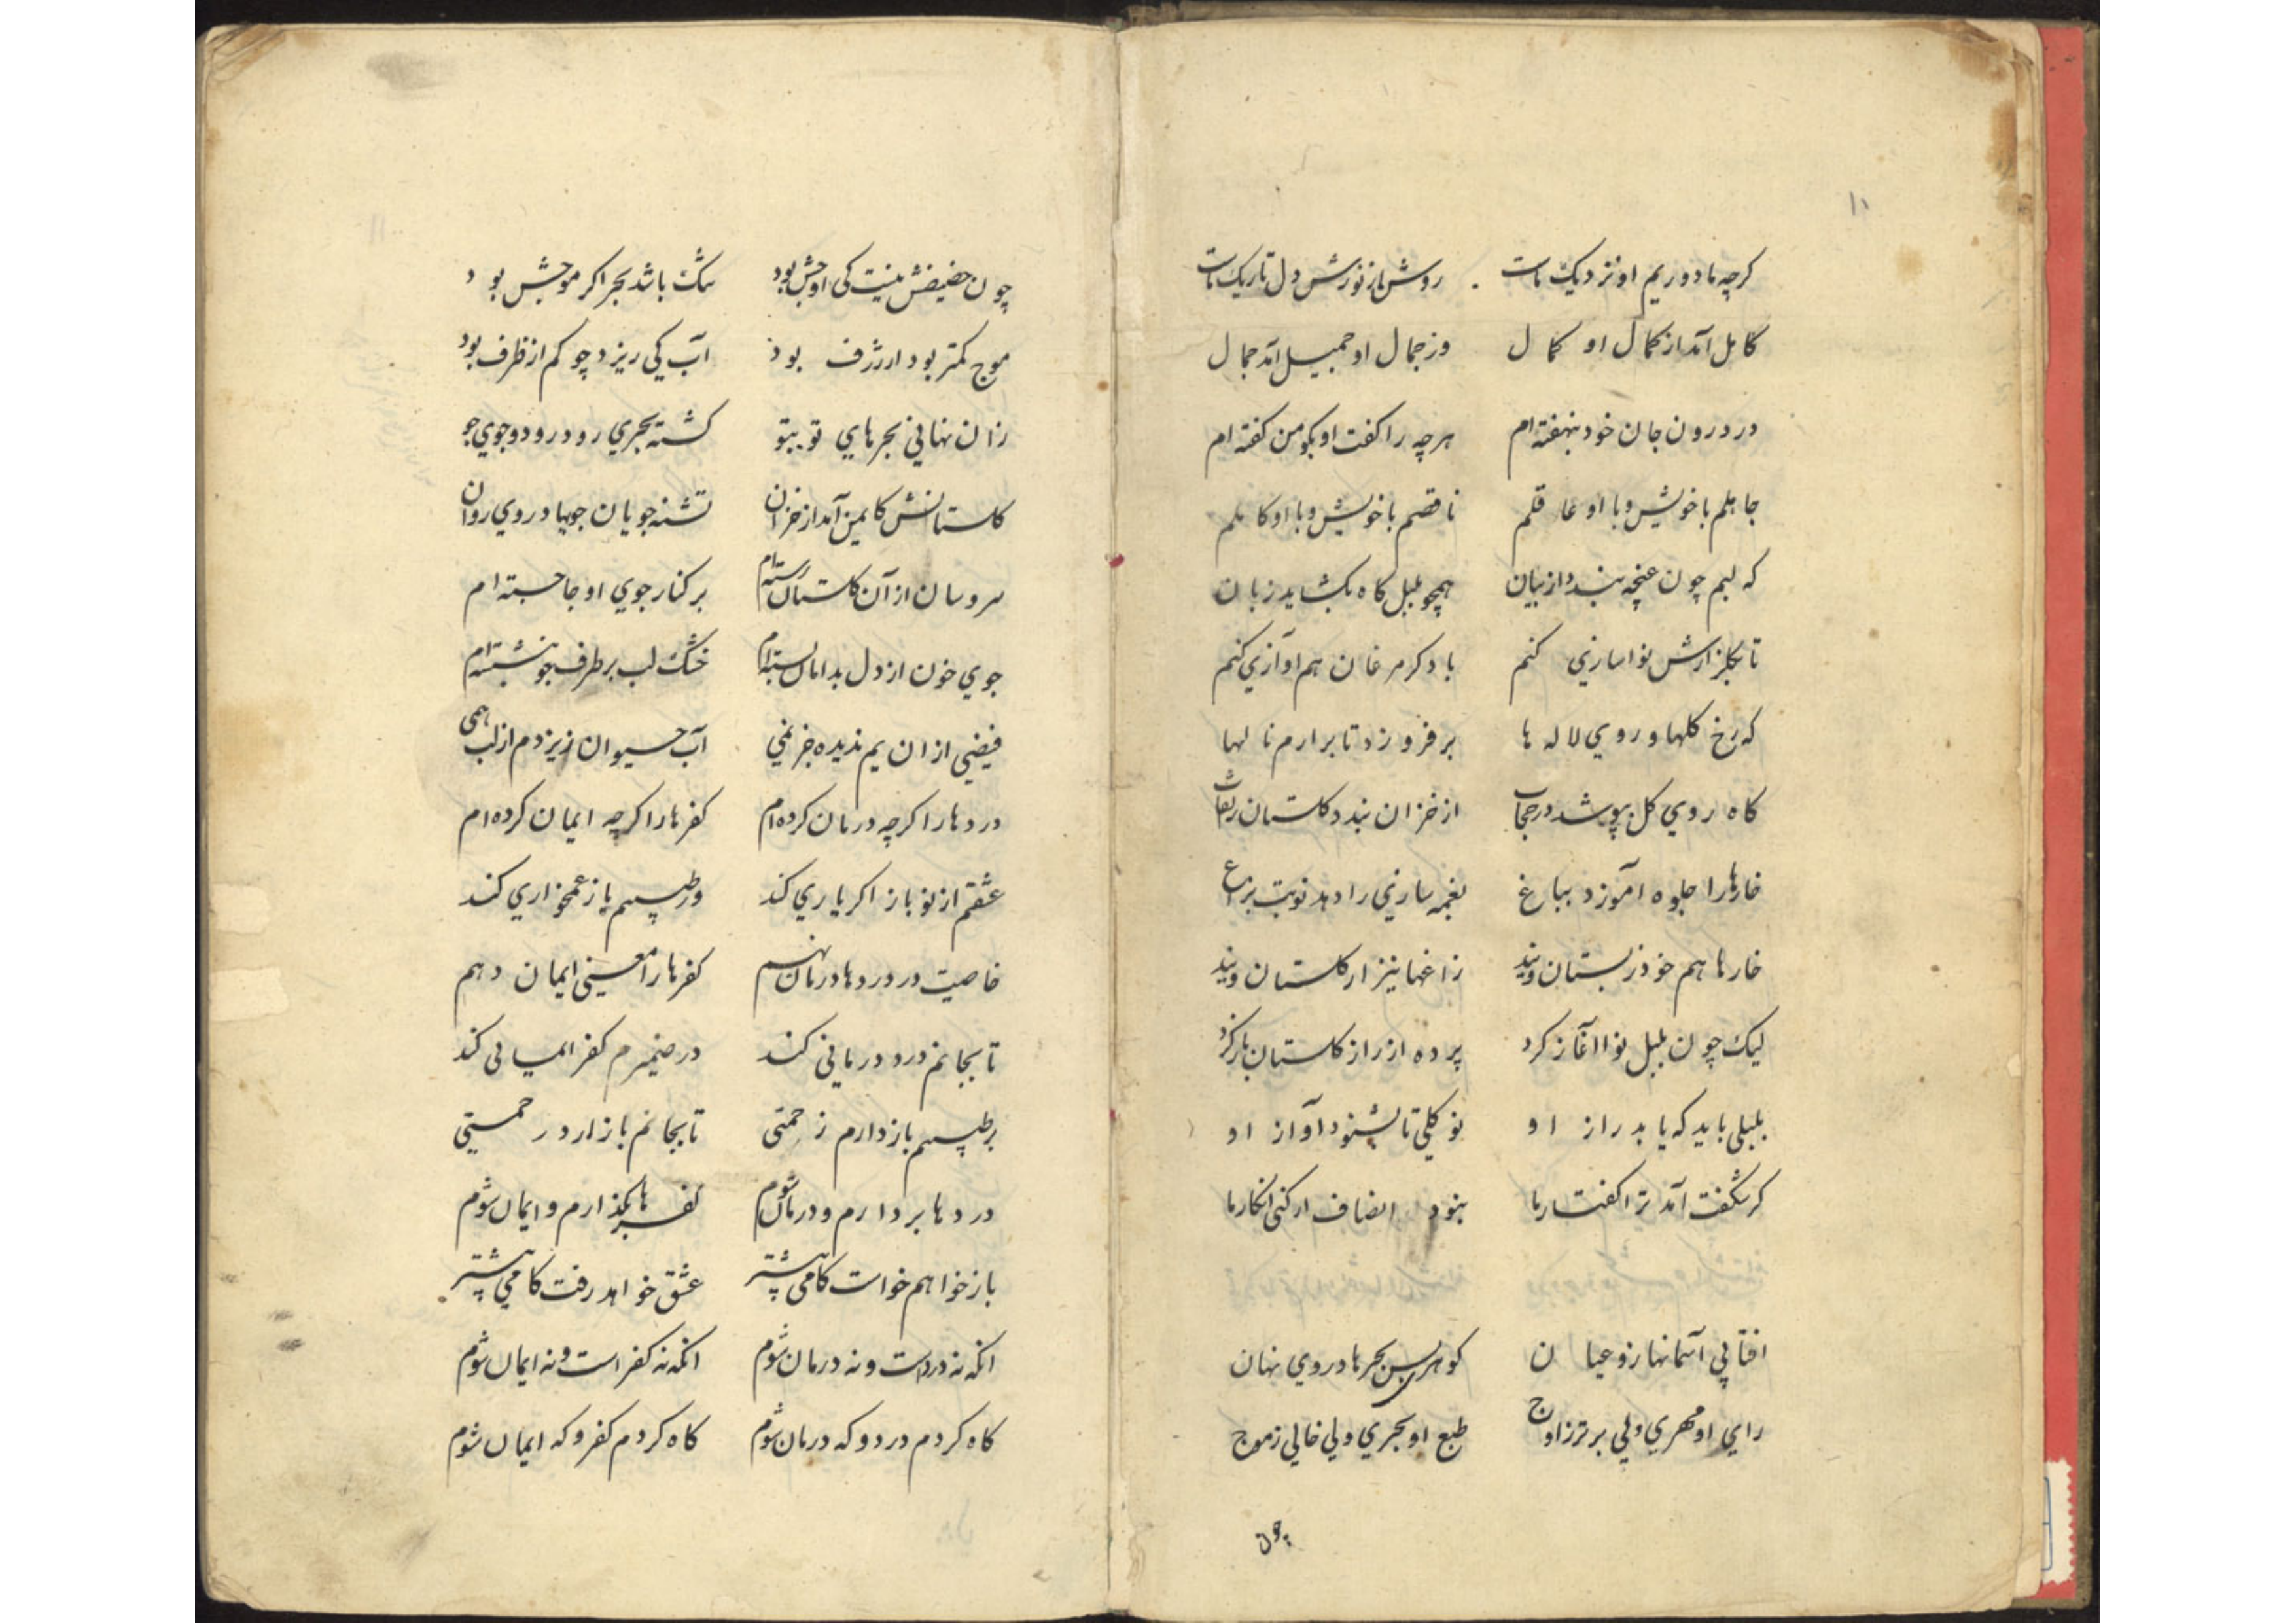 ۱۰
کرچه ما دوریم او نزدیک ماست روشن از نورش دل تاریک ماست
کامل آمد از کمال او کمال وز جمال او جمیل آمد جمال
در درون جان خود بنهفته ام هرچه را کفت او بکو من کفته ام
جاهلم با خویش و با او عاقلم ناقصم با خویش و با او کاملم
که لبم چون غنچه بندد از بیان همچو بلبل کاه بکشاید زبان
تا بکلزارش نواسازی کنم با دکر مرغان هم اوازی کنم
که رخ کلها و روی لاله ها بر فروزد تا برارم نالها
کاه روی کل بپوشد در حجاب از خزان بندد کلستان را نقاب
خارها را جلوه آموزد بباغ نغمه سازی را دهد نوبت بزاغ
خارها هم خود ز بستان ویند زاغها نیز از کلستان ویند
لیک چون بلبل نوا آغاز کرد پرده از راز کلستان باز کرد
بلبلی باید که یابد راز او نو کلی تا بشنود آواز او
کر شکفت آمد ترا کفتار ما نبود انصاف ار کنی انکار ما
افتابی آسمانها زو عیان کوهری بس بحرها در وی نهان
رای او مهری ولی برتر ز اوج طبع او بحری ولی خالی ز موج
چون
۱۱
چون حضیضش نیست کی اوجش بود تنک باشد بحر اکر موجش بود
موج کمتر بود ار ژرف بود آب کی ریزد چو کم از ظرف بود
زان نهانی بحرهای تو بتو کشته بحری رود رود و جوی جو
کلستانش کایمن آمد از خزان تشنه جویان جویها در وی روان
سروسان از آن کلستان رسته ام بر کنار جوی او جا جسته ام
جوی خون از دل بدامان بسته ام خشک لب بر طرف جو بنشسته ام
فیضی از ان یم ندیده جز نمی آب حیوان ریزدم از لب همی
دردها را کرچه درمان کرده ام کفرها را کرچه ایمان کرده ام
عشقم از نو باز اکر یاری کند ور طبیبم باز غمخواری کند
خاصیت در دردها درمان نهم کفرها را معنی ایمان دهم
تا بجانم درد درمانی کند در ضمیرم کفر ایمانی کند
بر طبیبم باز دارم زحمتی تا بجانم باز ارد رحمتی
دردها بردارم و درمان شوم کفرها بکذارم و ایمان شوم
باز خواهم خواست کامی بیشتر عشق خواهد رفت کامی پیشتر
انکه نه دردست و نه درمان شوم انکه نه کفر است و نه ایمان شوم
کاه کردم درد و که درمان شوم کاه کردم کفر و که ایمان شوم